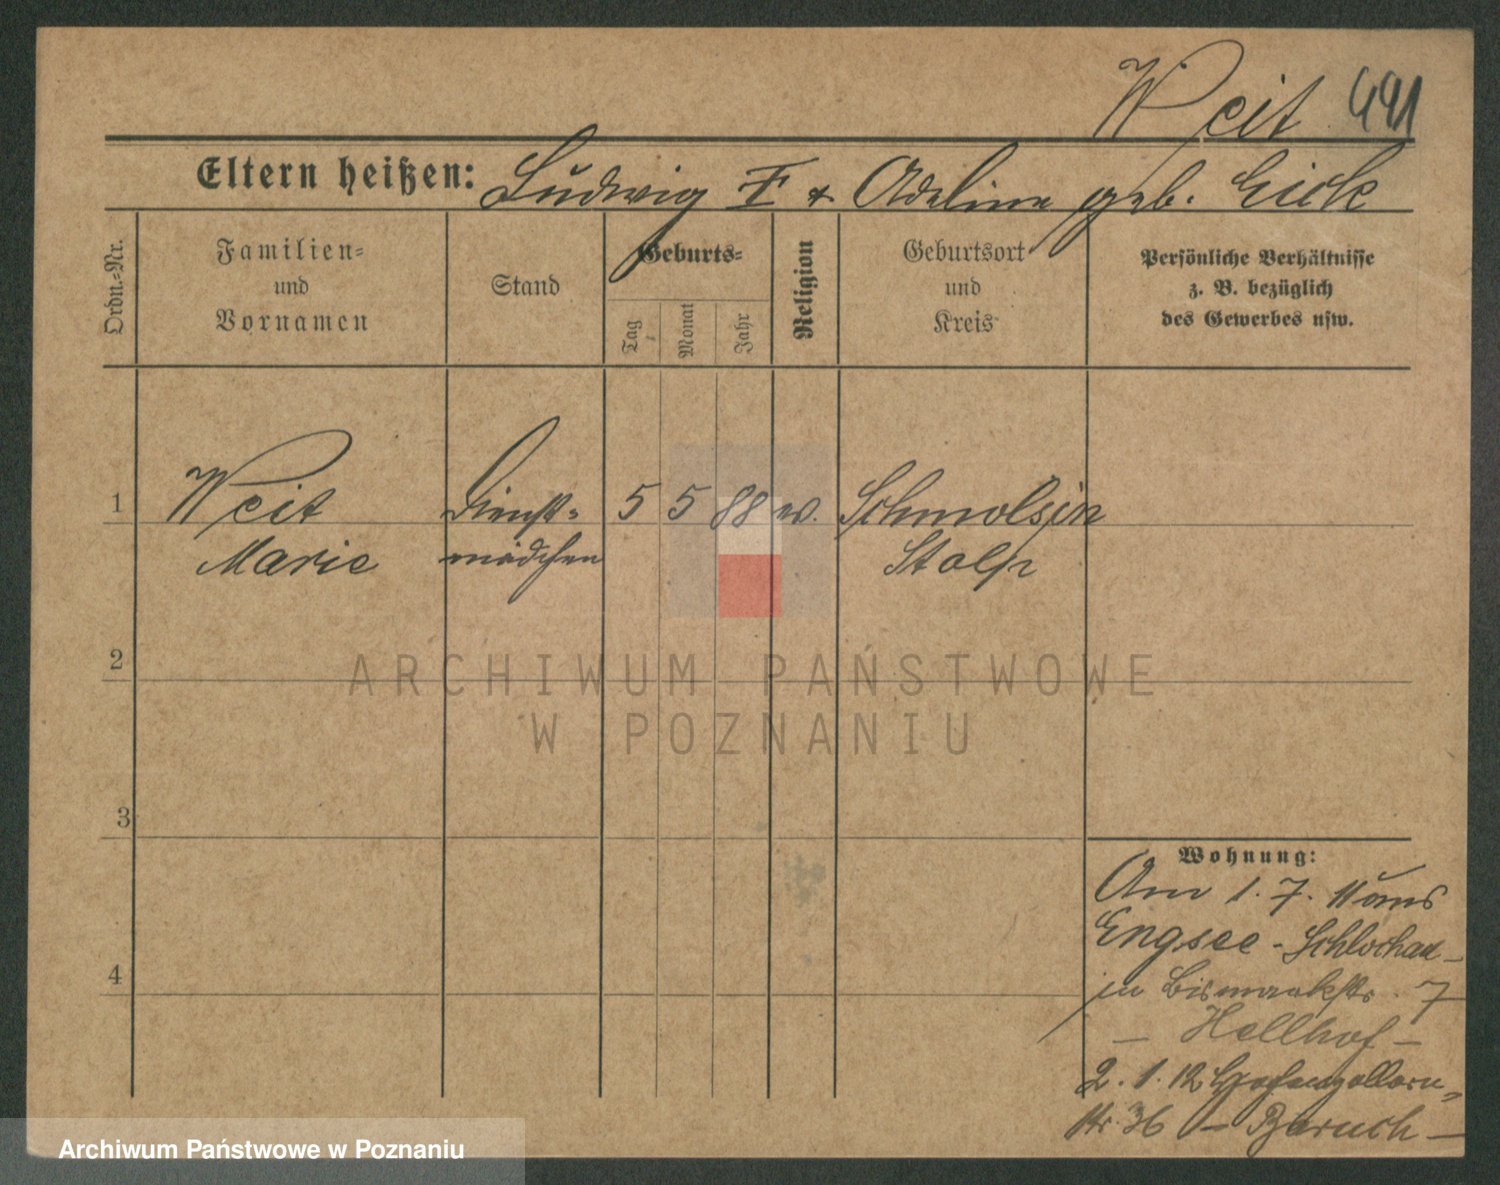 Weit 491
Eltern heißen: Ludwig F + Adeline geb. Eick
Ordn.=Nr.
Familien=
und
Vornamen
Stand
Geburts=
Tag
Monat
Jahr
Religion
Geburtsort
und
Kreis
Persönliche Verhältnisse
z. B. bezüglich
des Gewerbes usw.
1 Weit Dienst= 5 5 88 ev. Schmolsin
Marie mädchen Stolp
2
3
4
Wohnung:
Am 1. 7. 11 aus
Engsee - Schlochau -
in Bismarckstr. 7
- Hellhof -
2. 1. 12 Hohenzollern=
str. 36 - Baruch -
ARCHIWUM PAŃSTWOWE
W POZNANIU
Archiwum Państwowe w Poznaniu